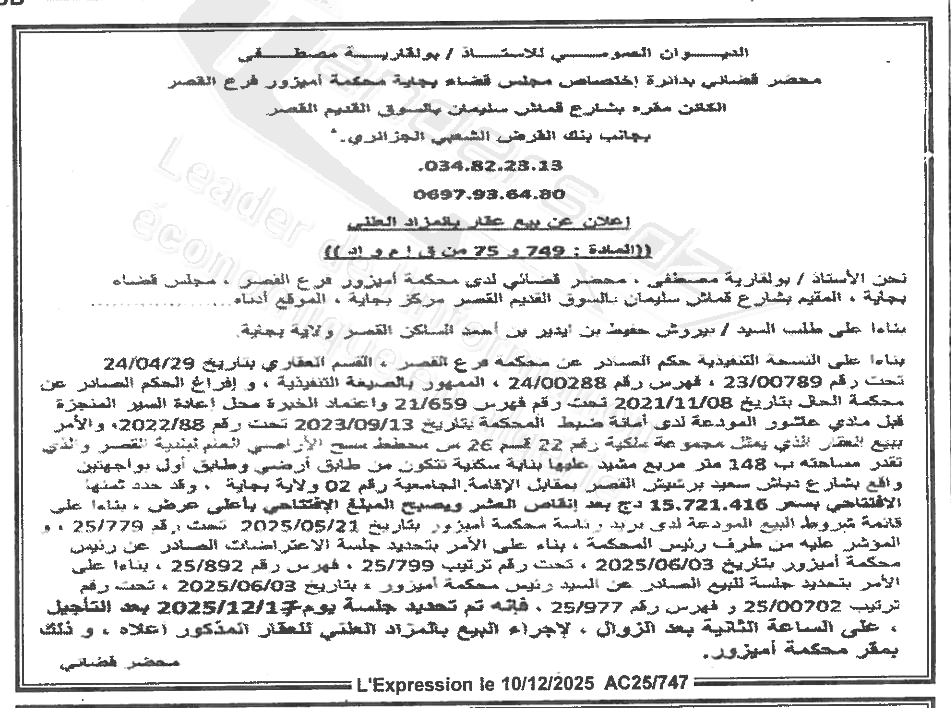 الديوان العمومي للأستاذ / بولقارية مصطفى
محضر قضائي بدائرة إختصاص مجلس قضاء بجاية محكمة أميزور فرع القصر
الكائن مقره بشارع قماش سليمان بالسوق القديم القصر
بجانب بنك القرض الشعبي الجزائري.
034.82.23.13.
0697.93.64.80
إعلان عن بيع عقار بالمزاد العلني
((المادة : 749 و 75 من ق إ م و إد ))
نحن الأستاذ / بولقارية مصطفى ، محضر قضائي لدى محكمة أميزور فرع القصر ، مجلس قضاء
بجاية ، المقيم بشارع قماش سليمان بالسوق القديم القصر مركز بجاية ، الموقع أدناه
بناءا على طلب السيد / بيروش حفيظ بن ايدير بن أحمد الساكن القصر ولاية بجاية.
بناءا على النسخة التنفيذية حكم الصادر عن محكمة فرع القصر ، القسم العقاري بتاريخ 24/04/29
تحت رقم 23/00789 ، فهرس رقم 24/00288 ، الممهور بالصيغة التنفيذية ، و إفراغ الحكم الصادر عن
محكمة الحال بتاريخ 2021/11/08 تحت رقم فهرس 21/659 واعتماد الخبرة محل إعادة السير المنجزة
قبل مادي عاشور المودعة لدى أمانة ضبط المحكمة بتاريخ 2023/09/13 تحت رقم 2022/88، والأمر
ببيع العقار الذي يمثل مجموعة ملكية رقم 22 قسم 26 من مخطط مسح الأراضي العام لبلدية القصر والذي
تقدر مساحته ب 148 متر مربع مشيد عليها بناية سكنية تتكون من طابق أرضي وطابق أول بواجهتين
واقع بشارع دباش سعيد برشيش القصر بمقابل الإقامة الجامعية رقم 02 ولاية بجاية ، وقد حدد ثمنها
الافتتاحي بسعر 15.721.416 دج بعد إنقاص العشر ويصبح المبلغ الإفتتاحي بأعلى عرض ، بناءا على
قائمة شروط البيع المودعة لدى بريد رئاسة محكمة أميزور بتاريخ 2025/05/21 تحت رقم 25/779 ، و
المؤشر عليه من طرف رئيس المحكمة ، بناء على الأمر بتحديد جلسة الاعتراضات الصادر عن رئيس
محكمة أميزور بتاريخ 2025/06/03 ، تحت رقم ترتيب 25/799 ، فهرس رقم 25/892 ، بناءا على
الأمر بتحديد جلسة للبيع الصادر عن السيد رئيس محكمة أميزور ، بتاريخ 2025/06/03 ، تحت رقم
ترتيب 25/00702 و فهرس رقم 25/977 ، فإنه تم تحديد جلسة يوم 2025/12/17 بعد التأجيل
، على الساعة الثانية بعد الزوال ، لإجراء البيع بالمزاد العلني للعقار المذكور أعلاه ، و ذلك
بمقر محكمة أميزور.
محضر قضائي
L'Expression le 10/12/2025 AC25/747